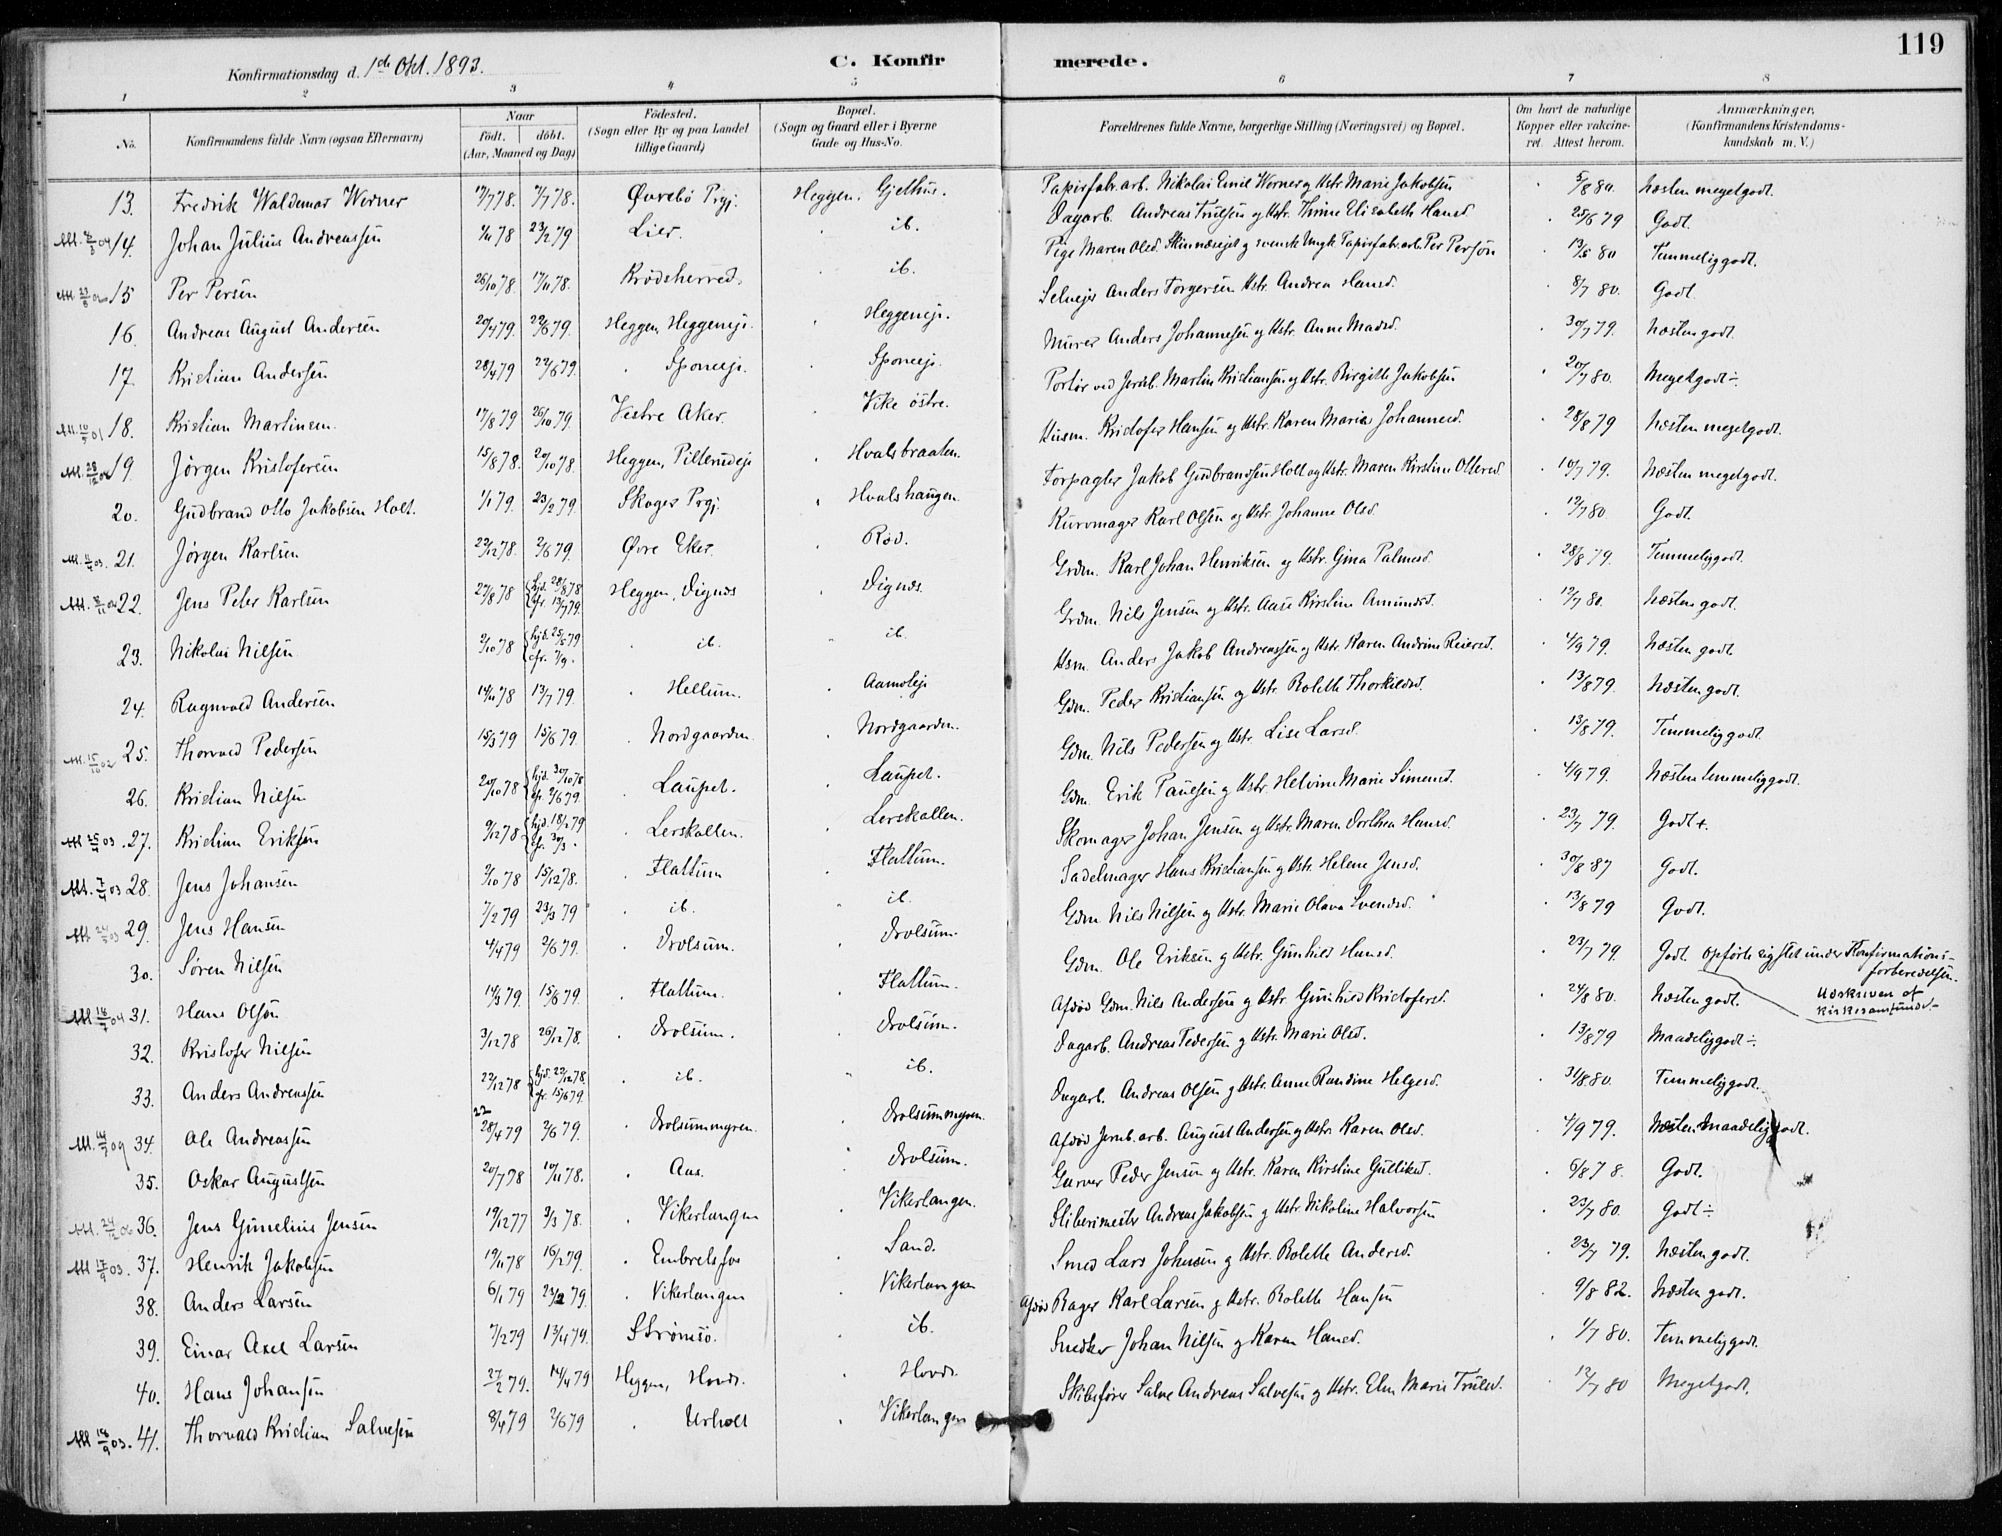 119
Konfirmationsdag d. 1ste Okt. 1893.
C. Konfirmerede.
1 2 3 4 5 6 7 8
No.
Konfirmandens fulde Navn (ogsaa Efternavn)
Naar
födt. döbt.
(Aar, Maaned og Dag)
Födested.
(Sogn eller By og paa Landet
tillige Gaard)
Bopæl.
(Sogn og Gaard eller i Byerne
Gade og Hus-No.
Forældrenes fulde Navne, borgerlige Stilling (Næringsvei) og Bopæl.
Om havt de naturlige
Kopper eller vakcine-
ret. Attest herom.
Anmærkninger,
(Konfirmandens Kristendoms-
kundskab m. V.)
13. Fredrik Waldemar Werner 17/7 78. Øvrebö Prgj. Heggen, Gjethus. Papirfabr.arb. Nikolai Emil Werner og Hstr. Marie Jakobsen 5/8 80. Næsten megetgodt.
14. Johan Julius Andreassen 78 23/2 79 Lier. ib. Dagarb. Andreas Trulsen og Hstr. Thrine Elisabeth Hansd. 25/6 79 Godt.
15 Per Persen 26/10 78. 17/11 78. Krödsherred. ib. Pige Maren Olsd. og svensk Ungk. Papirfabr.arb. Per Persön 13/5 80 Temmeliggodt.
16. Andreas August Andersen 20/4 79. 22/6 79. Heggen, Heggeneje. Heggeneje. Selvejer Anders Torgersen Hstr. Andrea Hansd. 8/7 80. Godt.
17. Kristian Andersen 28/4 79 22/6 79. Sponeeje. Sponeeje. Murer Anders Johannesen og Hstr. Anne Madsd. 30/7 79. Næsten godt.
18. Kristian Martinsen 17/8 79 26/10 79. Vestre Aker. Vike östre. Portör ved Jernb. Martin Kristiansen og Hstr. Birgitte Jakobsen 20/7 80. Megetgodt ÷.
19. Jörgen Kristofersen 15/8 78. 20/10 78. Heggen, Pilterudeje Hvalsbraaten. Husm. Kristofer Hansen og Hstr. Karen Maria Johannesd. 28/8 79 Næsten megetgodt.
20. Gudbrand Otto Jakobsen Holt. 1/1 79. 23/2 79 Skoger Prgj. Hvalshaugen. Forpagter Jakob Gudbrandsen Holt og Hstr. Maren Kirstine Ottersd. 10/7 79. Næsten megetgodt.
21. Jörgen Karlsen 22/12 78. 2/6 79. Øvre Eker. Röd. Kurvmager Karl Olsen og Hstr. Johanne Olsd. 12/7 80 Godt.
22. Jens Peter Karlsen 27/8 78 hjd. 28/8 78 cfr. 13/7 79. Heggen, Dignæs Dignæs. Grdm. Karl Johan Henriksen og Hstr. Gina Palmesd. 28/8 79. Temmeliggodt.
23. Nikolai Nilsen 9/10 78 hjd. 25/5 79 cfr. 7/9. ib. ib. Grdm. Nils Jensen og Hstr. Aase Kirstine Amundsd. 12/7 80. Næsten godt.
24. Ragnvald Andersen 14/11 78 13/7 79. Hellum. Aamoteje Hsm. Anders Jakob Andreassen og Hstr. Karen Andrine Reiersd. 4/9 79. Næsten godt.
25. Thorvald Pedersen 15/3 79 15/6 79. Nordgaarden. Nordgaarden. Gdm. Peder Kristiansen og Hstr. Bolette Thorkildsd. 13/8 79. Næsten godt.
26. Kristian Nilsen 20/10 78 hjd. 30/10 78 cfr. 2/6 79. Laupet. Laupet. Gdm. Nils Pedersen og Hstr. Lise Larsd. 13/8 79. Temmeliggodt.
27. Kristian Eriksen 9/12 78 hjd. 18/1 79 cfr. 30/3. Lerskallen. Lerskallen. Gdm. Erik Paulsen og Hstr. Helvine Marie Simensd. 4/9 79. Næsten temmeliggodt.
28. Jens Johansen 2/10 78 15/12 78. Flattum Flattum. Skomager Johan Jensen og Hstr. Maren Dorthea Hansd. 23/7 79. Godt +.
29. Jens Hansen 7/2 79 23/3 79 ib. ib. Sadelmager Hans Kristiansen og Hstr. Helene Jensd. 30/8 87 Godt.
30. Sören Nilsen 4/4 79 2/6 79. Drolsum. Drolsum. Gdm. Nils Nilsen og Hstr. Marie Olava Svendsd. 13/8 79 Godt.
31. Hans Olsen 14/3 79 15/6 79. Flattum. Flattum. Gdm. Ole Eriksen og Hstr. Gunhild Hansd. 23/7 79. Godt. Opførte sig slet under Konfirmations-
forberedelsen.
Udskreven af
kirkesamfundet.
32. Kristofer Nilsen 3/12 78 26/12 78. Drolsum. Drolsum. Afdöd Gdm. Nils Andersen og Hstr. Gunhild Kristofersd. 24/8 80. Næsten godt.
33. Anders Andreassen 22/12 78 hjd. 22/12 78. cfr. 15/6 79. ib. ib. Dagarb. Andreas Pedersen og Hstr. Marie Olsd. 13/8 79 Maadeliggodt ÷.
34. Ole Andreassen 22 28/4 79 2/6 79. Drolsummyren. Drolsummyren. Dagarb. Andreas Olsen og Hstr. Anne Randine Helgesd. 31/8 80. Temmeliggodt.
35. Oskar Augustsen 20/7 78 10/11 78. Aas. Drolsum. Afdöd Jernb.arb. August Andersen og Hstr. Karen Olsd. 4/9 79. Næsten maadeliggodt.
36. Jens Gunelius Jensen 19/12 77 3/3 78. Vikerlangen Vikerlangen. Garver Peder Jensen og Hstr. Karen Kirstine Gulliksd. 6/8 78. Godt.
37. Henrik Jakobsen 19/11 78 16/2 79. Embretsfos Sand. Sliberimester Andreas Jakobsen og Hstr. Nikoline Halvorsen 23/7 80. Godt ÷
38. Anders Larsen 6/1 79 23/2 79. Vikerlangen Vikerlangen Smed Lars Johnsen og Hstr. Bolette Andersd. 23/7 79. Næsten godt.
39. Einar Axel Larsen 7/2 79 13/4 79. Strömsö. ib. Afdöd Bager Karl Larsen og Hstr. Bolette Hansen 9/8 82. Næsten godt.
40. Hans Johansen 27/2 79. 14/4 79 Heggen, Hovde. Hovde. Snedker Johan Nilsen og Karen Hansd. 1/7 80. Temmeliggodt.
41. Thorvald Kristian Salvesen 8/4 79 2/6 79 Urholt Vikerlangen Skibsförer Salve Andreas Salvesen og Hstr. Elen Marie Trulsd. 12/7 80 Megetgodt.